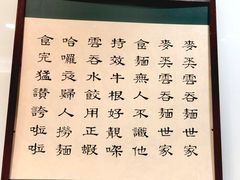 麥奀雲吞麵世家
麥奀雲吞麵世家
食麵無人不識他
持效牛根好靚㗎
雲吞水餃用正蝦
哈囉人撈麵
食完猛讚誇啦啦